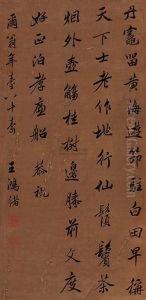 丹竈留黃海遊節駐白田早稱
天下士老作地行仙鬢鬢茶
烟外壺觴桂樹邊勝前文度
好正泊孝廉船 恭祝
爾翁年臺八十壽 王鴻緒